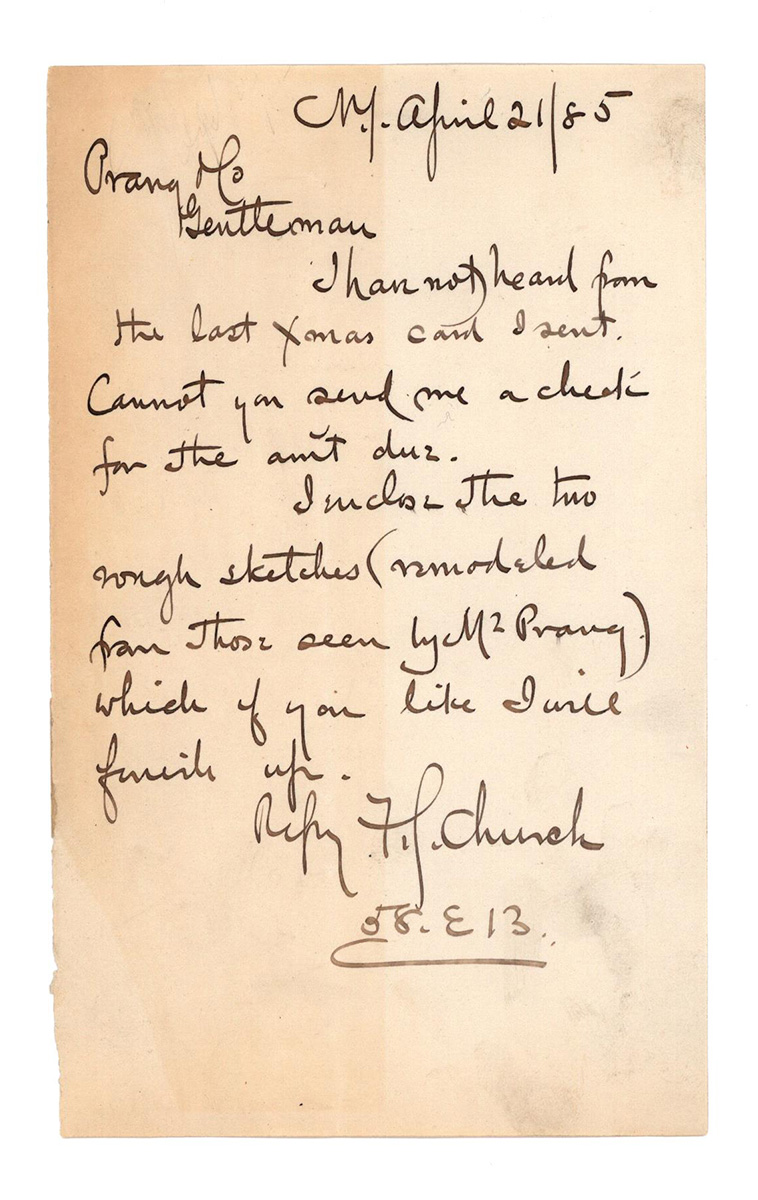 N.Y. April 21/85
Prang & Co
Gentleman
I have not heard from
the last Xmas card I sent.
Cannot you send me a check
for the am't due.
I enclose the two
rough sketches (remodeled
from those seen by Mr Prang)
which if you like I will
finish up.
Respy F.S. Church
58. E 13.